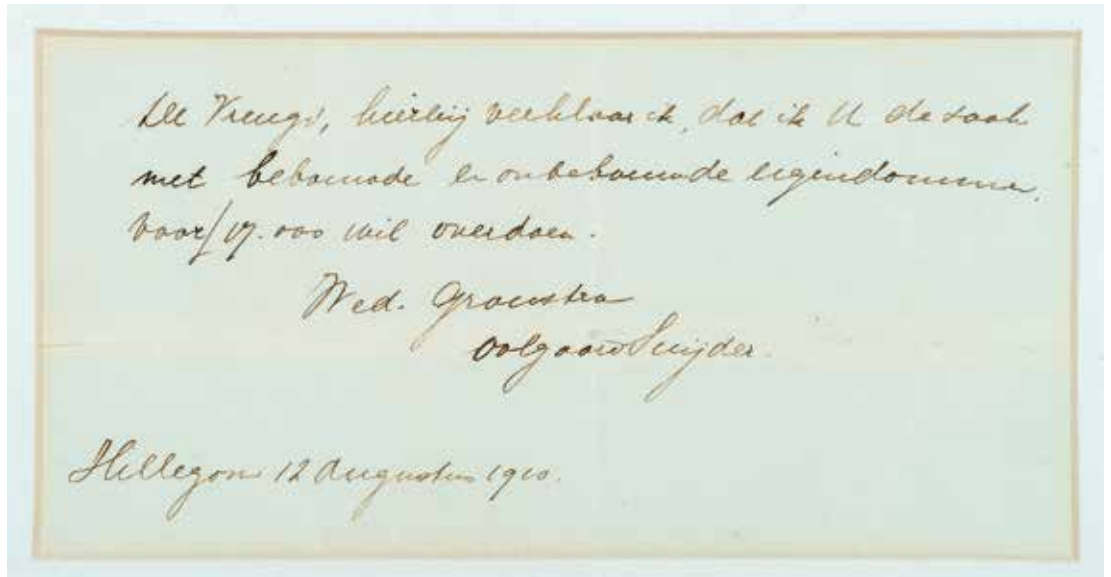 De Vreugd, hierbij verklaar ik, dat ik U de zaak
met bebouwde en onbebouwde eigendommen,
voor f 17.000 wil overdoen.
Wed. Groenstra
Snijder.
Hillegom 12 Augustus 1910.